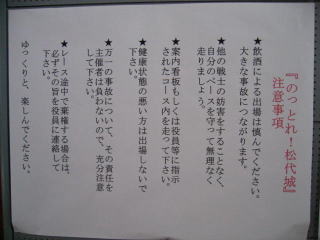 『のっとれ!松代城』
注意事項
★飲酒による出場は慎んでください。
大きな事故につながります。
★他の戦士の妨害をすることなく、
自分のペースを守って無理なく
走りましょう。
★案内看板もしくは役員等に指示
されたコース内を走って下さい。
★健康状態の悪い方は出場しないで
下さい。
★万一の事故について、その責任を
主催者は負わないので、充分注意
して下さい。
★レース途中で棄権する場合は、
必ずその旨を役員に連絡して
下さい。
ゆっくりと、楽しんでください。